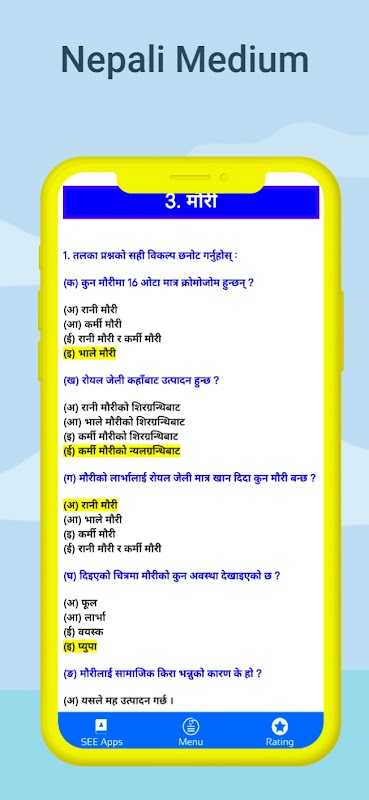 Nepali Medium
3. मौरी
1. तलका प्रश्नको सही विकल्प छनोट गर्नुहोस् :
(क) कुन मौरीमा 16 ओटा मात्र क्रोमोजोम हुन्छन् ?
(अ) रानी मौरी
(आ) कर्मी मौरी
(ई) रानी मौरी र कर्मी मौरी
(इ) भाले मौरी
(ख) रोयल जेली कहाँबाट उत्पादन हुन्छ ?
(अ) रानी मौरीको शिरग्रन्थिबाट
(आ) भाले मौरीको शिरग्रन्थिबाट
(इ) कर्मी मौरीको शिरग्रन्थिबाट
(ई) कर्मी मौरीको न्यलग्रन्थिबाट
(ग) मौरीको लार्भालाई रोयल जेली मात्र खान दिदा कुन मौरी बन्छ ?
(अ) रानी मौरी
(आ) भाले मौरी
(इ) कर्मी मौरी
(ई) रानी मौरी र कर्मी मौरी
(घ) दिइएको चित्रमा मौरीको कुन अवस्था देखाइएको छ ?
(अ) फूल
(आ) लार्भा
(ई) वयस्क
(इ) प्युपा
(ङ) मौरीलाई सामाजिक किरा भन्नुको कारण के हो ?
(अ) यसले मह उत्पादन गर्छ ।
SEE Apps
Menu
Rating